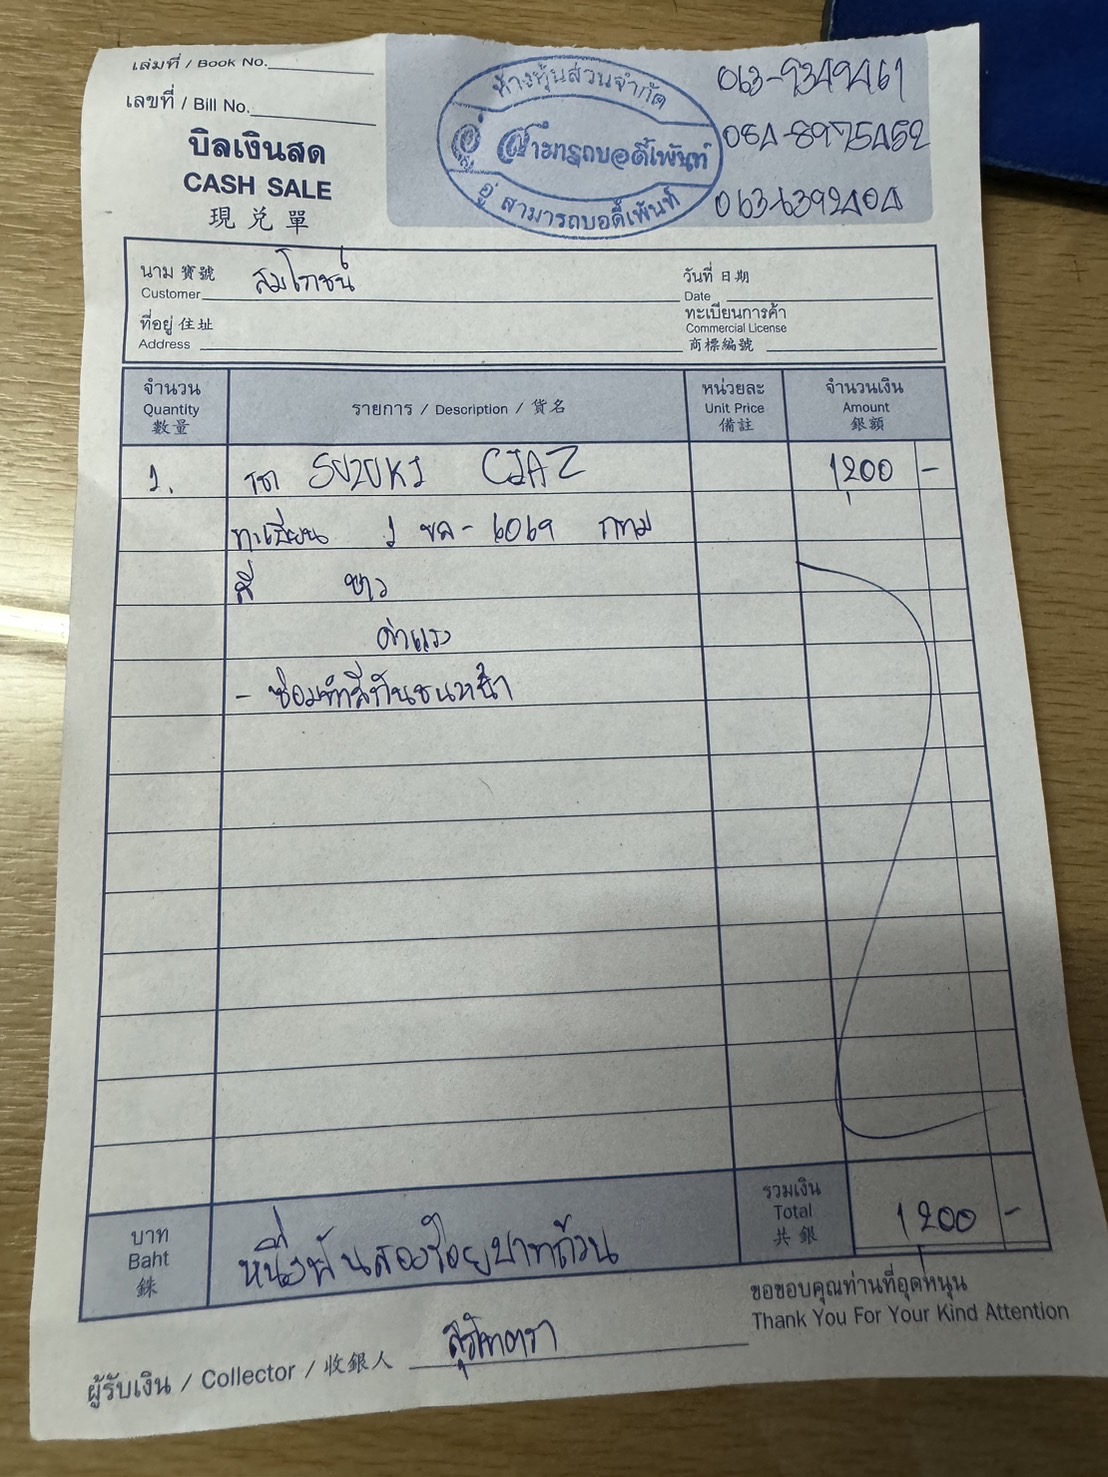 เล่มที่ / Book No.
เลขที่ / Bill No.
บิลเงินสด
CASH SALE
現兌單
ห้างหุ้นส่วนจำกัด
อู่ สามารถบอดี้เพ้นท์
อู่ สามารถบอดี้เพ้นท์
063-9349461
084-8975452
063-6392404
นาม 寶號 สมโภชน์
Customer
วันที่ 日期
Date
ที่อยู่ 住址
Address
ทะเบียนการค้า
Commercial License
商標編號
จำนวน
Quantity
數量
รายการ / Description / 貨名
หน่วยละ
Unit Price
備註
จำนวนเงิน
Amount
銀額
1. รถ SUZUKI CIAZ 1200 -
ทะเบียน 1 ขล - 6069 กทม
สี ขาว
ค่าแรง
- ซ่อมทำสีกันชนหน้า
บาท
Baht
銖
หนึ่งพันสองร้อยบาทถ้วน
รวมเงิน
Total
共銀
1200 -
ขอขอบคุณท่านที่อุดหนุน
Thank You For Your Kind Attention
ผู้รับเงิน / Collector / 收銀人